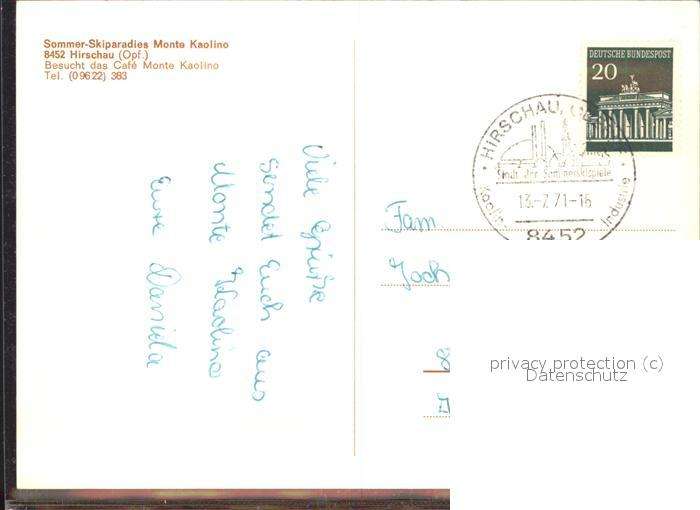 Sommer-Skiparadies Monte Kaolino
8452 Hirschau (Opf.)
Besucht das Café Monte Kaolino
Tel. (0 96 22) 383
DEUTSCHE BUNDESPOST
20
HIRSCHAU,
Stadt der Sommerskispiele
13.-7.71-16
Kaolin- Industrie
8452
Viele Grüße
sendet Euch aus
Monte Kaolino
Eure Daniela
Fam
Joch
privacy protection (c)
Datenschutz